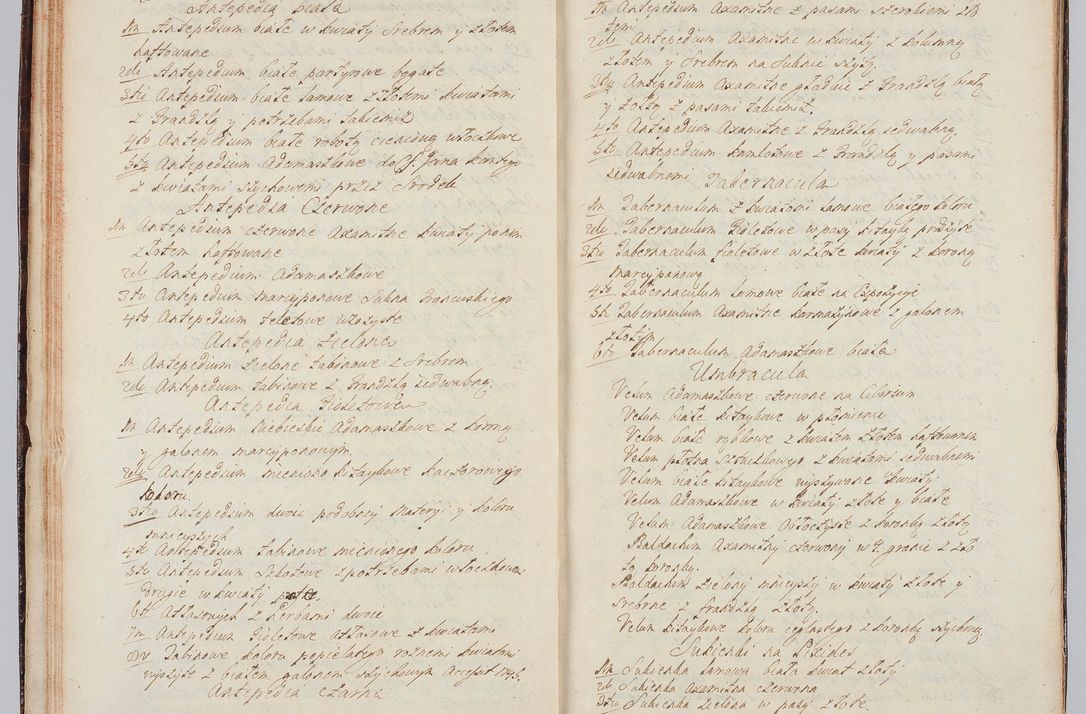 Antepedia biała
1m Antepedium białe w kwiaty srebrem y złotem
haftowane
2do Antepedium białe partyrowe bogate
3tio Antepedium białe lamowe z złotemi kwiatami
z frandzlą y potrzebami
4to Antepedium białe roboty włoczkowe
5to Antepedium Adamaszkowe do S. Jana
z kwiatami szychowemi przez srodek
Antepedia Czerwone
1m Antepedium czerwone Axamitne kwiaty
złotem haftowane
2do Antepedium Adamaszkowe
3tio Antepedium marcyponowe
4to Antepedium
Antepedia Zielone
1m Antepedium Zielone tabinowe z srebrem
2do Antepedium tabinowe z frandzlą jedwabną
Antepedia Fioletowe
1m Antepedium niebieskie Adamaszkowe z koroną
y galonem marcyponowym
2do Antepedium mieniono kitaykowe kaczorowego
koloru
3tio Antepedium dwoie podobney materyi y koloru
mnieyszych
4to Antepedium tabinowe mienionego koloru
5to Antepedium z potrzebami włoczkowemi
drugie w kwiaty
6to Atłasowych z herbami dwoie
7m Antepedium Fioletowe atłasowe z kwiatami
8vo Tabinowe koloru popielatego roznemi kwiatami
wyszyte z białem galonem szychowym Accessit 1745.
Antepedia Czarne
1m Antepedium Axamitne z pasami szerokiemi zło
temi
2do Antepedium Axamitne w kwiaty z kolumną
złotem y srebrem na suknie szytą
3tio Antepedium Axamitne gładkie z frandzlą białą
y żołtą z pasami
4to Antepedium Axamitne z frandzlą jedwabną
5to Antepedium kamlotowe z frandzlą y pasami
jedwabnemi Tabernacula
1m Tabernaculum z kwiatami lamowe białego koloru
2do Tabernaculum Fioletowe w pasy kitayką podszyte
3tio Tabernaculum fioletowe w złote kwiaty z koroną
marcyponową
4to Tabernaculum lamowe białe na Expozycyi
5to Tabernaculum Axamitne karmazynowe z galonem
złotym
6to Tabernaculum Adamaszkowe białe
Umbracula
Velum Adamaszkowe czerwone na Ciborium
Velum białe kitaykowe w płomienie
Velum białe rąbkowe z kwiatem złotem haftowanem
Velum płotna z kwiatami jedwabnemi
Velum białe kitaykowe wyszywane kwiaty
Velum Adamaszkowe w kwiaty złote y białe
Velum Adamaszkowe z koronką złotą
Baldachim Axamitny czerwony w 4 granie z zło
tą koronką.
Baldachim zielony mnieyszy w kwiaty złote y
srebrne z frandzlą złotą.
Velum kitaykowe koloru ceglastego z koronką szychową
Sukienki na Pixides
1m Sukienka lamowa biała kwiat złoty
2do Sukienka Axamitna czerwona
3tio Sukienka zielona w pasy złote.